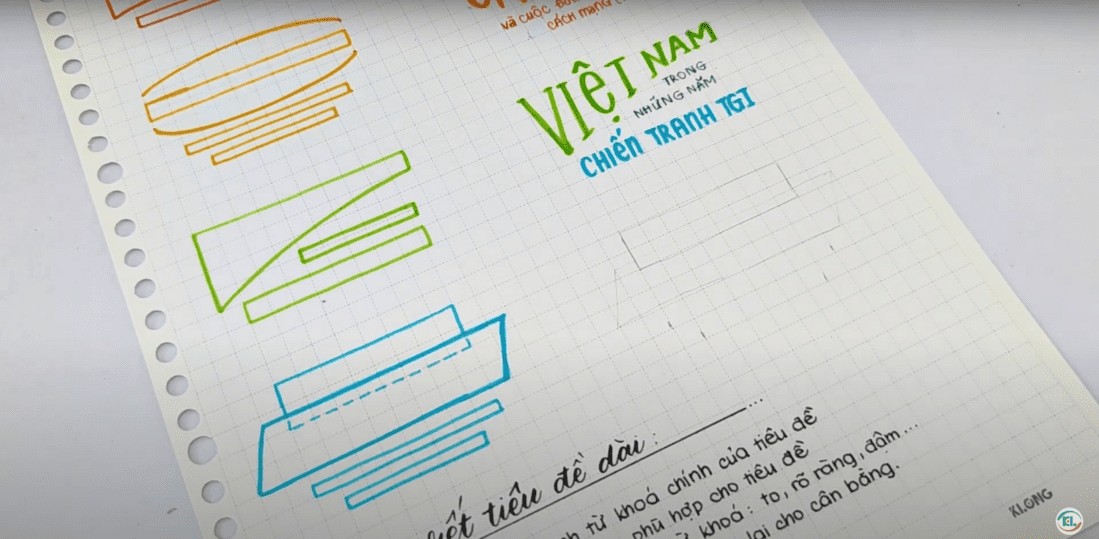 và cuộc
cách mạng
VIỆT NAM
TRONG
NHỮNG NĂM
CHIẾN TRANH TGI
tiêu đề dài : ...
từ khoá chính của tiêu đề
phù hợp cho tiêu đề
khoá : to, rõ ràng, đậm ...
lại cho cân bằng.
KLONG